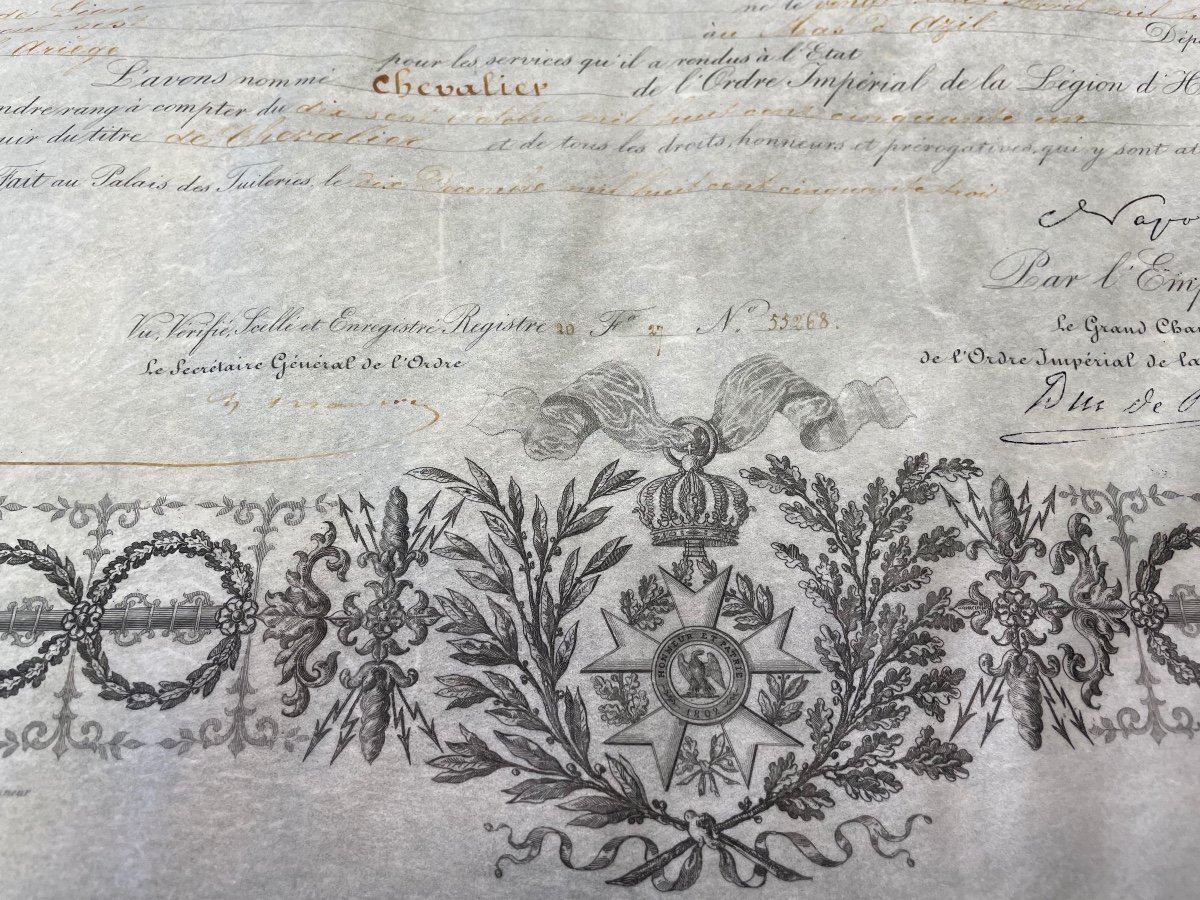 de Ligne
né le vingt
l'Ariège
au Mas d'Azil
Dépa
pour les services qu'il a rendus à l'Etat
L'avons nommé Chevalier de l'Ordre Impérial de la Légion d'H
endre rang à compter du dix octobre mil huit cent cinquante un
uir du titre de Chevalier et de tous les droits, honneurs et prérogatives, qui y sont at
Fait au Palais des Tuileries, le dix Décembre mil huit cent cinquante trois
Napo
Par l'Emp
Vu, Vérifié, Scellé et Enregistré Registre 20 F° 27 N° 55268.
Le Grand Cha
Le Secrétaire Général de l'Ordre
de l'Ordre Impérial de la
Duc de
HONNEUR ET PATRIE
1802
neur